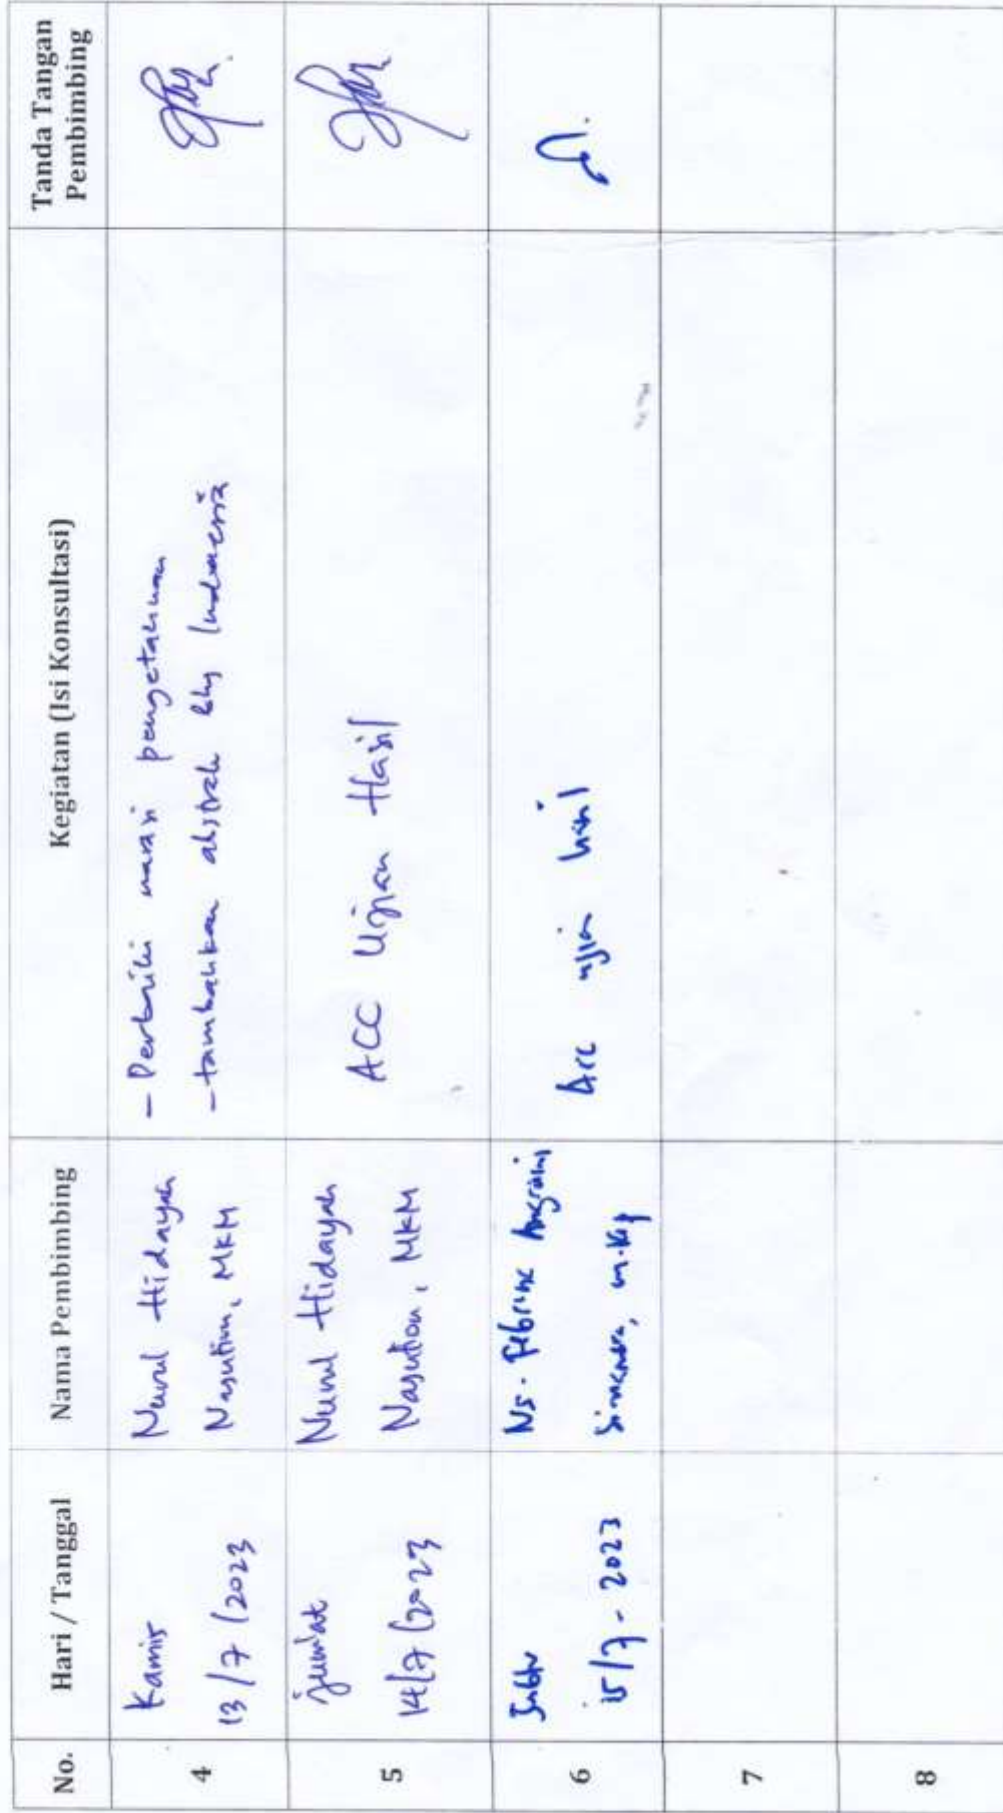 No.
Hari / Tanggal
Nama Pembimbing
Kegiatan (Isi Konsultasi)
Tanda Tangan
Pembimbing
4
Kamis
13/7/2023
Nurul Hidayah
Nasution, MKM
- Perbaiki narasi pengetahuan
- tambahkan abstrak bhg Indonesia
5
Jum'at
14/7/2023
Nurul Hidayah
Nasution, MKM
ACC Ujian Hasil
6
Sabtu
15/7-2023
Ns. Febrina Angraini
Simamora, M.Kep
Acc ujian hasil
7
8